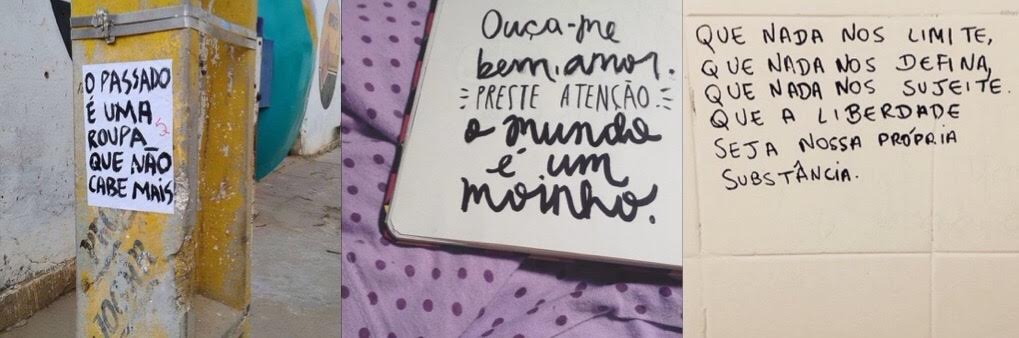 O PASSADO
É UMA
ROUPA
QUE NÃO
CABE MAIS
Ouça-me
bem, amor.
PRESTE ATENÇÃO.
o mundo
é um
moinho.
QUE NADA NOS LIMITE,
QUE NADA NOS DEFINA,
QUE NADA NOS SUJEITE.
QUE A LIBERDADE
SEJA NOSSA PRÓPRIA
SUBSTÂNCIA.